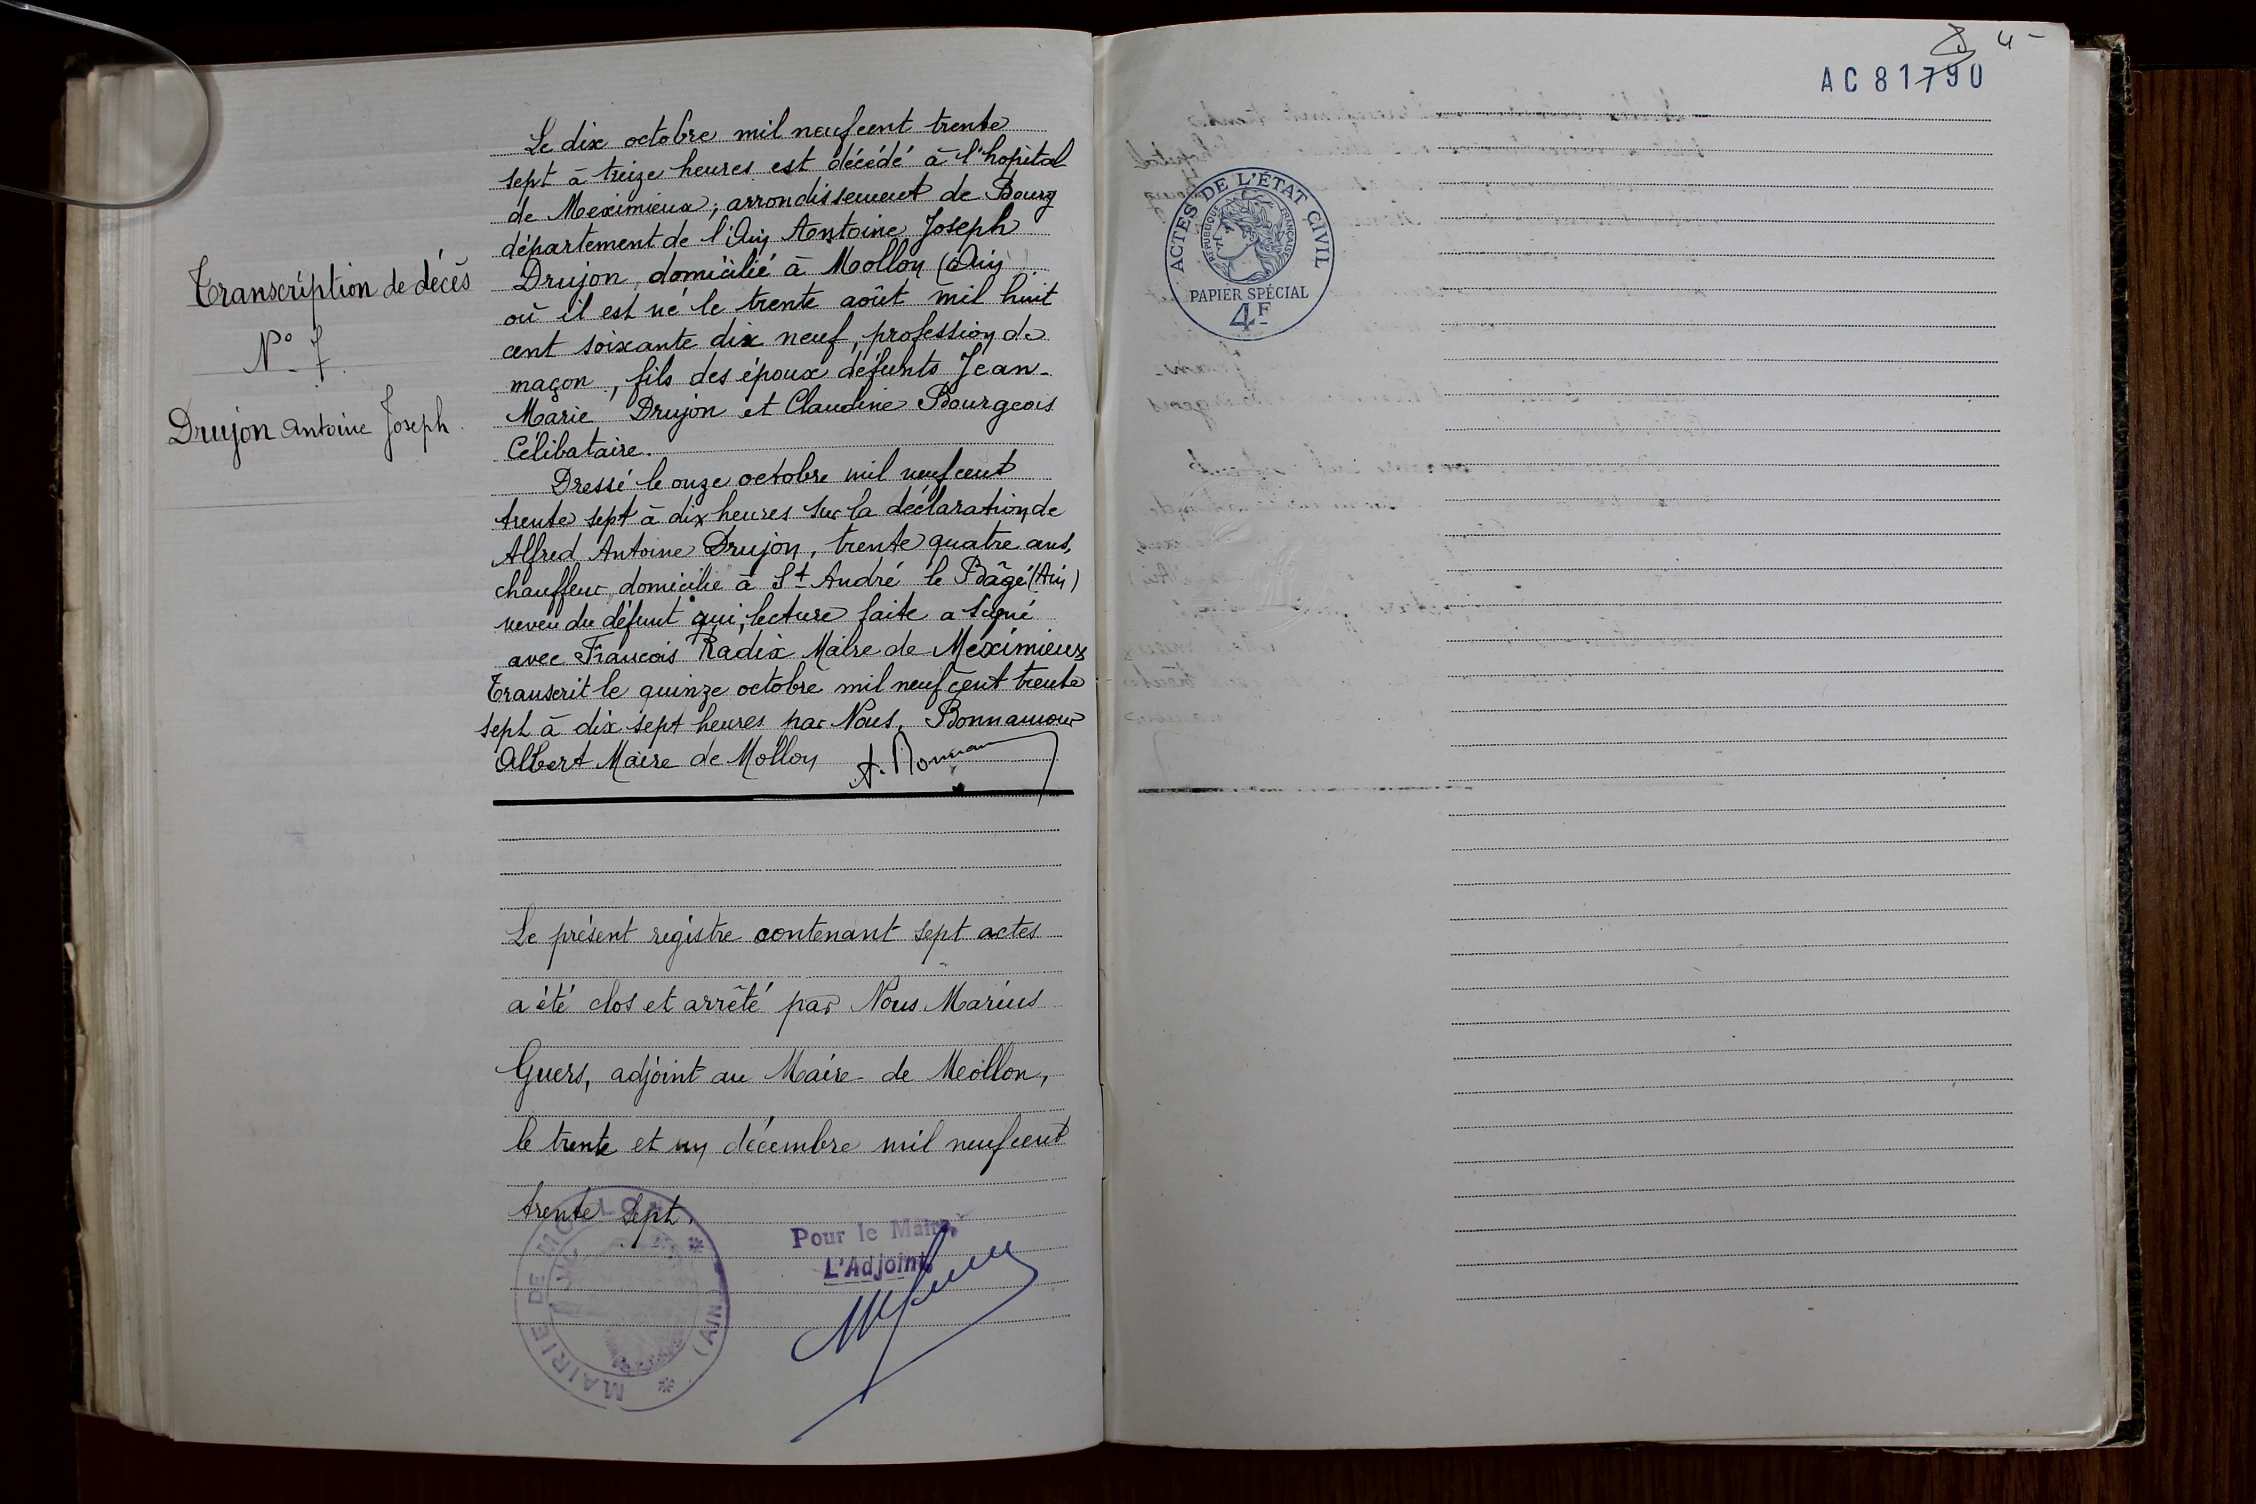 Transcription de décès
No 7.
Drujon Antoine Joseph.
Le dix octobre mil neufcent trente
sept à treize heures est décédé à l'hopital
de Meximieux, arrondissement de Bourg
département de l'Ain Antoine Joseph
Drujon, domicilié à Mollon (Ain)
où il est né le trente août mil huit
cent soixante dix neuf, profession de
maçon, fils des époux défunts Jean-
Marie Drujon et Claudine Bourgeois
Célibataire.
Dressé le onze octobre mil neufcent
trente sept à dix heures sur la déclaration de
Alfred Antoine Drujon, trente quatre ans,
chauffeur, domicilié à St André le Bâgé (Ain)
neveu du défunt qui, lecture faite a signé
avec François Radix Maire de Meximieux
Transcrit le quinze octobre mil neuf cent trente
sept à dix sept heures par Nous, Bonnamour
Albert Maire de Mollon
Le présent régistre contenant sept actes
a été clos et arrêté par Nous Marius
Guers, adjoint au Maire de Mollon,
le trente et un décembre mil neufcent
trente sept.
MAIRIE DE MOLLON (AIN)
Pour le Maire,
L'Adjoint,
4-
AC 81790
ACTES DE L'ÉTAT CIVIL
RÉPUBLIQUE FRANÇAISE
PAPIER SPÉCIAL
4F